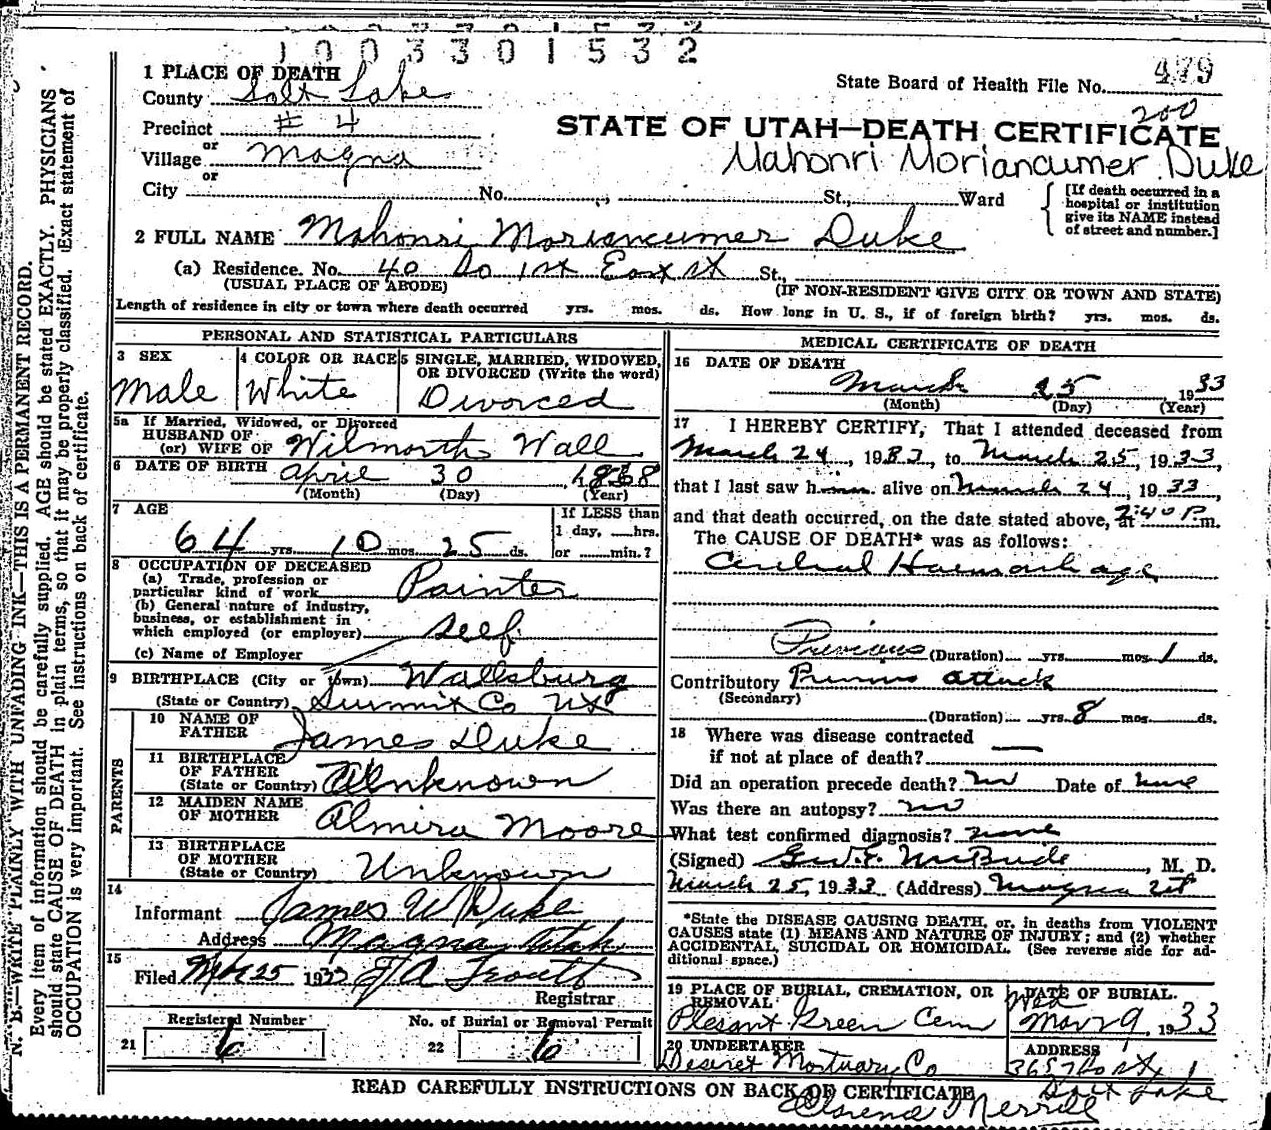 1003301532
1 PLACE OF DEATH
State Board of Health File No. 479
County Salt Lake
200
Precinct # 4
STATE OF UTAH—DEATH CERTIFICATE
or
Village Magna
Mahonri Moriancumer Duke
or
City No. St., Ward
[If death occurred in a
hospital or institution
give its NAME instead
of street and number.]
2 FULL NAME Mahonri Moriancumer Duke
(a) Residence. No. 40 So 1st East St St.,
(USUAL PLACE OF ABODE) (IF NON-RESIDENT GIVE CITY OR TOWN AND STATE)
Length of residence in city or town where death occurred yrs. mos. ds. How long in U. S., if of foreign birth? yrs. mos. ds.
PERSONAL AND STATISTICAL PARTICULARS
3 SEX
Male
4 COLOR OR RACE
White
5 SINGLE, MARRIED, WIDOWED,
OR DIVORCED (Write the word)
Divorced
5a If Married, Widowed, or Divorced
HUSBAND OF
(or) WIFE OF Wilmorth Wall
6 DATE OF BIRTH April 30 1868
(Month) (Day) (Year)
7 AGE
64 yrs. 10 mos. 25 ds.
If LESS than
1 day, hrs.
or min.?
8 OCCUPATION OF DECEASED
(a) Trade, profession or
particular kind of work Painter
(b) General nature of industry,
business, or establishment in
which employed (or employer) self
(c) Name of Employer
9 BIRTHPLACE (City or town) Wallsburg
(State or Country) Summit Co Ut
PARENTS
10 NAME OF
FATHER James Duke
11 BIRTHPLACE
OF FATHER
(State or Country) Unknown
12 MAIDEN NAME
OF MOTHER Almira Moore
13 BIRTHPLACE
OF MOTHER
(State or Country) Unknown
14
Informant James W Duke
Address Magna Utah
15
Filed Mch 25 1933 Registrar
Registered Number
21 6
No. of Burial or Removal Permit
22 6
MEDICAL CERTIFICATE OF DEATH
16 DATE OF DEATH
March 25 1933
(Month) (Day) (Year)
17 I HEREBY CERTIFY, That I attended deceased from
March 24, 1933, to March 25, 1933,
that I last saw him alive on March 24, 1933,
and that death occurred, on the date stated above, at 2:40 P m.
The CAUSE OF DEATH* was as follows:
Cerebral Haemorhage
(Duration) yrs. mos. 1 ds.
Contributory Previous attack
(Secondary)
(Duration) yrs. 8 mos. ds.
18 Where was disease contracted
if not at place of death?
Did an operation precede death? no Date of none
Was there an autopsy? no
What test confirmed diagnosis? none
(Signed) M. D.
March 25, 1933 (Address) Magna Ut
*State the DISEASE CAUSING DEATH, or, in deaths from VIOLENT
CAUSES state (1) MEANS AND NATURE OF INJURY; and (2) whether
ACCIDENTAL, SUICIDAL OR HOMICIDAL. (See reverse side for ad-
ditional space.)
19 PLACE OF BURIAL, CREMATION, OR
REMOVAL
Plesant Green Cem
DATE OF BURIAL.
Wed
1933
20 UNDERTAKER
Deseret Mortuary Co
ADDRESS
Salt Lake
READ CAREFULLY INSTRUCTIONS ON BACK OF CERTIFICATE
Merrill
N. B.—WRITE PLAINLY WITH UNFADING INK—THIS IS A PERMANENT RECORD.
Every item of information should be carefully supplied. AGE should be stated EXACTLY. PHYSICIANS
should state CAUSE OF DEATH in plain terms, so that it may be properly classified. Exact statement of
OCCUPATION is very important. See instructions on back of certificate.